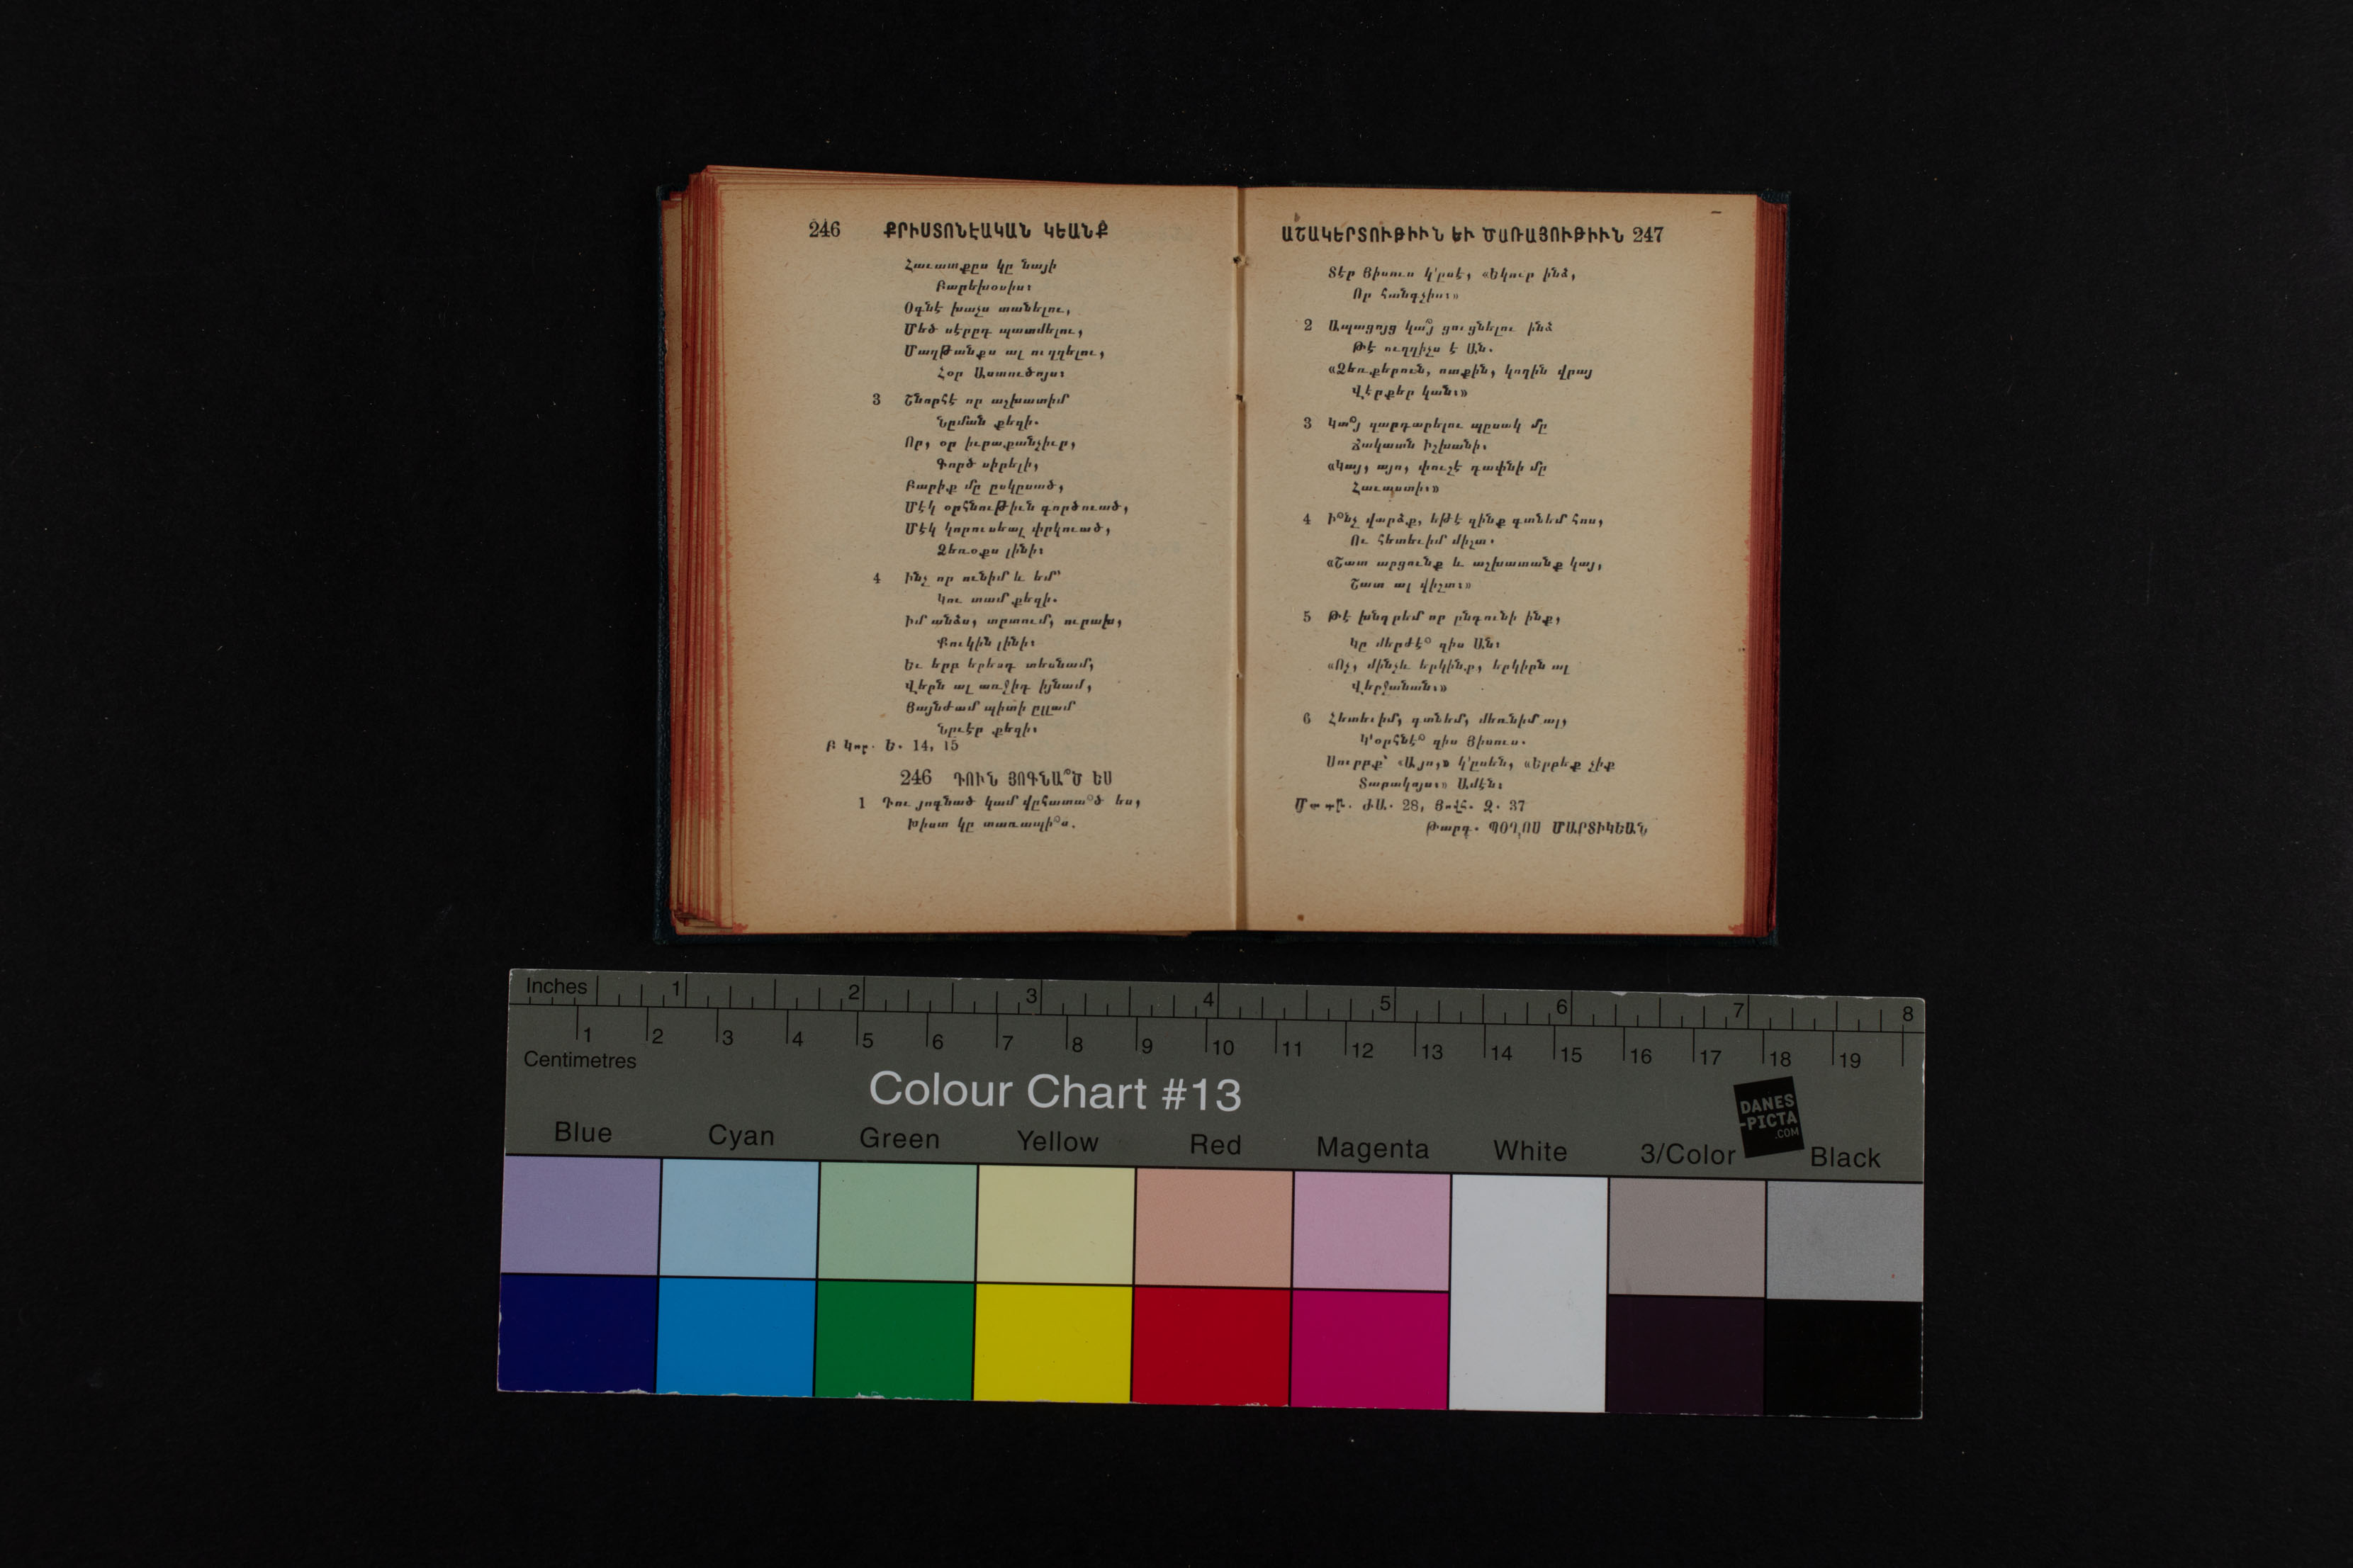 246 ՔՐԻՍՏՈՆԷԱԿԱՆ ԿԵԱՆՔ
Հաւատքըս կը նայի
Բարեխօսիս։
Օգնէ խաչս տանելու,
Մեծ սէրըդ պատմելու,
Մաղթանքս ալ ուղղելու,
Հօր Աստուծոյս։
3 Շնորհէ որ աշխատիմ
Նըման քեզի.
Որ, օր իւրաքանչիւր,
Գործ սիրելի,
Բարիք մը ըսկըսած,
Մէկ օրհնութիւն գործուած,
Մէկ կորուսեալ փրկուած,
Ձեռօքս լինի։
4 Ինչ որ ունիմ և եմ՝
Կու տամ քեզի.
Իմ անձս, տրտում, ուրախ,
Քուկին լինի։
Եւ երբ երեսդ տեսնամ,
Վերն ալ առջիդ իյնամ,
Յայնժամ պիտի ըլլամ
Նըւէր քեզի։
Բ Կոր. Ե. 14, 15
246 ԴՈՒՆ ՅՈԳՆԱ՞Ծ ԵՍ
1 Դու յոգնած կամ վըհատա՞ծ ես,
Խիստ կը տառապի՞ս.
ԱՇԱԿԵՐՏՈՒԹԻՒՆ ԵՒ ԾԱՌԱՅՈՒԹԻՒՆ 247
Տէր Յիսուս կ'ըսէ, «Եկուր ինձ,
Որ հանգչիս։»
2 Ապացոյց կա՞յ ցուցնելու ինձ
Թէ ուղղիչս է Ան.
«Ձեռքերուն, ոտքին, կողին վրայ
Վէրքեր կան։»
3 Կա՞յ զարդարելու պըսակ մը
Ճակատն Իշխանի.
«Կայ, այո, փուշէ դափնի մը
Հաւաստի։»
4 Ի՞նչ վարձք, եթէ զինք գտնեմ հոս,
Ու հետեւիմ միշտ.
«Շատ արցունք և աշխատանք կայ,
Շատ ալ վիշտ։»
5 Թէ խնդրեմ որ ընդունի ինք,
Կը մերժէ՞ զիս Ան։
«Ոչ, մինչև երկինք, երկիրն ալ
Վերջանան։»
6 Հետեւիմ, գտնեմ, մեռնիմ ալ,
Կ'օրհնէ՞ զիս Յիսուս.
Սուրբք՝ «Այո,» կ'ըսեն, «Երբեք չիք
Տարակոյս։» Ամէն։
Մատթ. ԺԱ. 28, Յովհ. Զ. 37
Թարգ. ՊՕՂՈՍ ՄԱՐՏԻԿԵԱՆ
Inches 1 2 3 4 5 6 7 8
1 2 3 4 5 6 7 8 9 10 11 12 13 14 15 16 17 18 19
Centimetres
Colour Chart #13
DANES
-PICTA
.COM
Blue Cyan Green Yellow Red Magenta White 3/Color Black